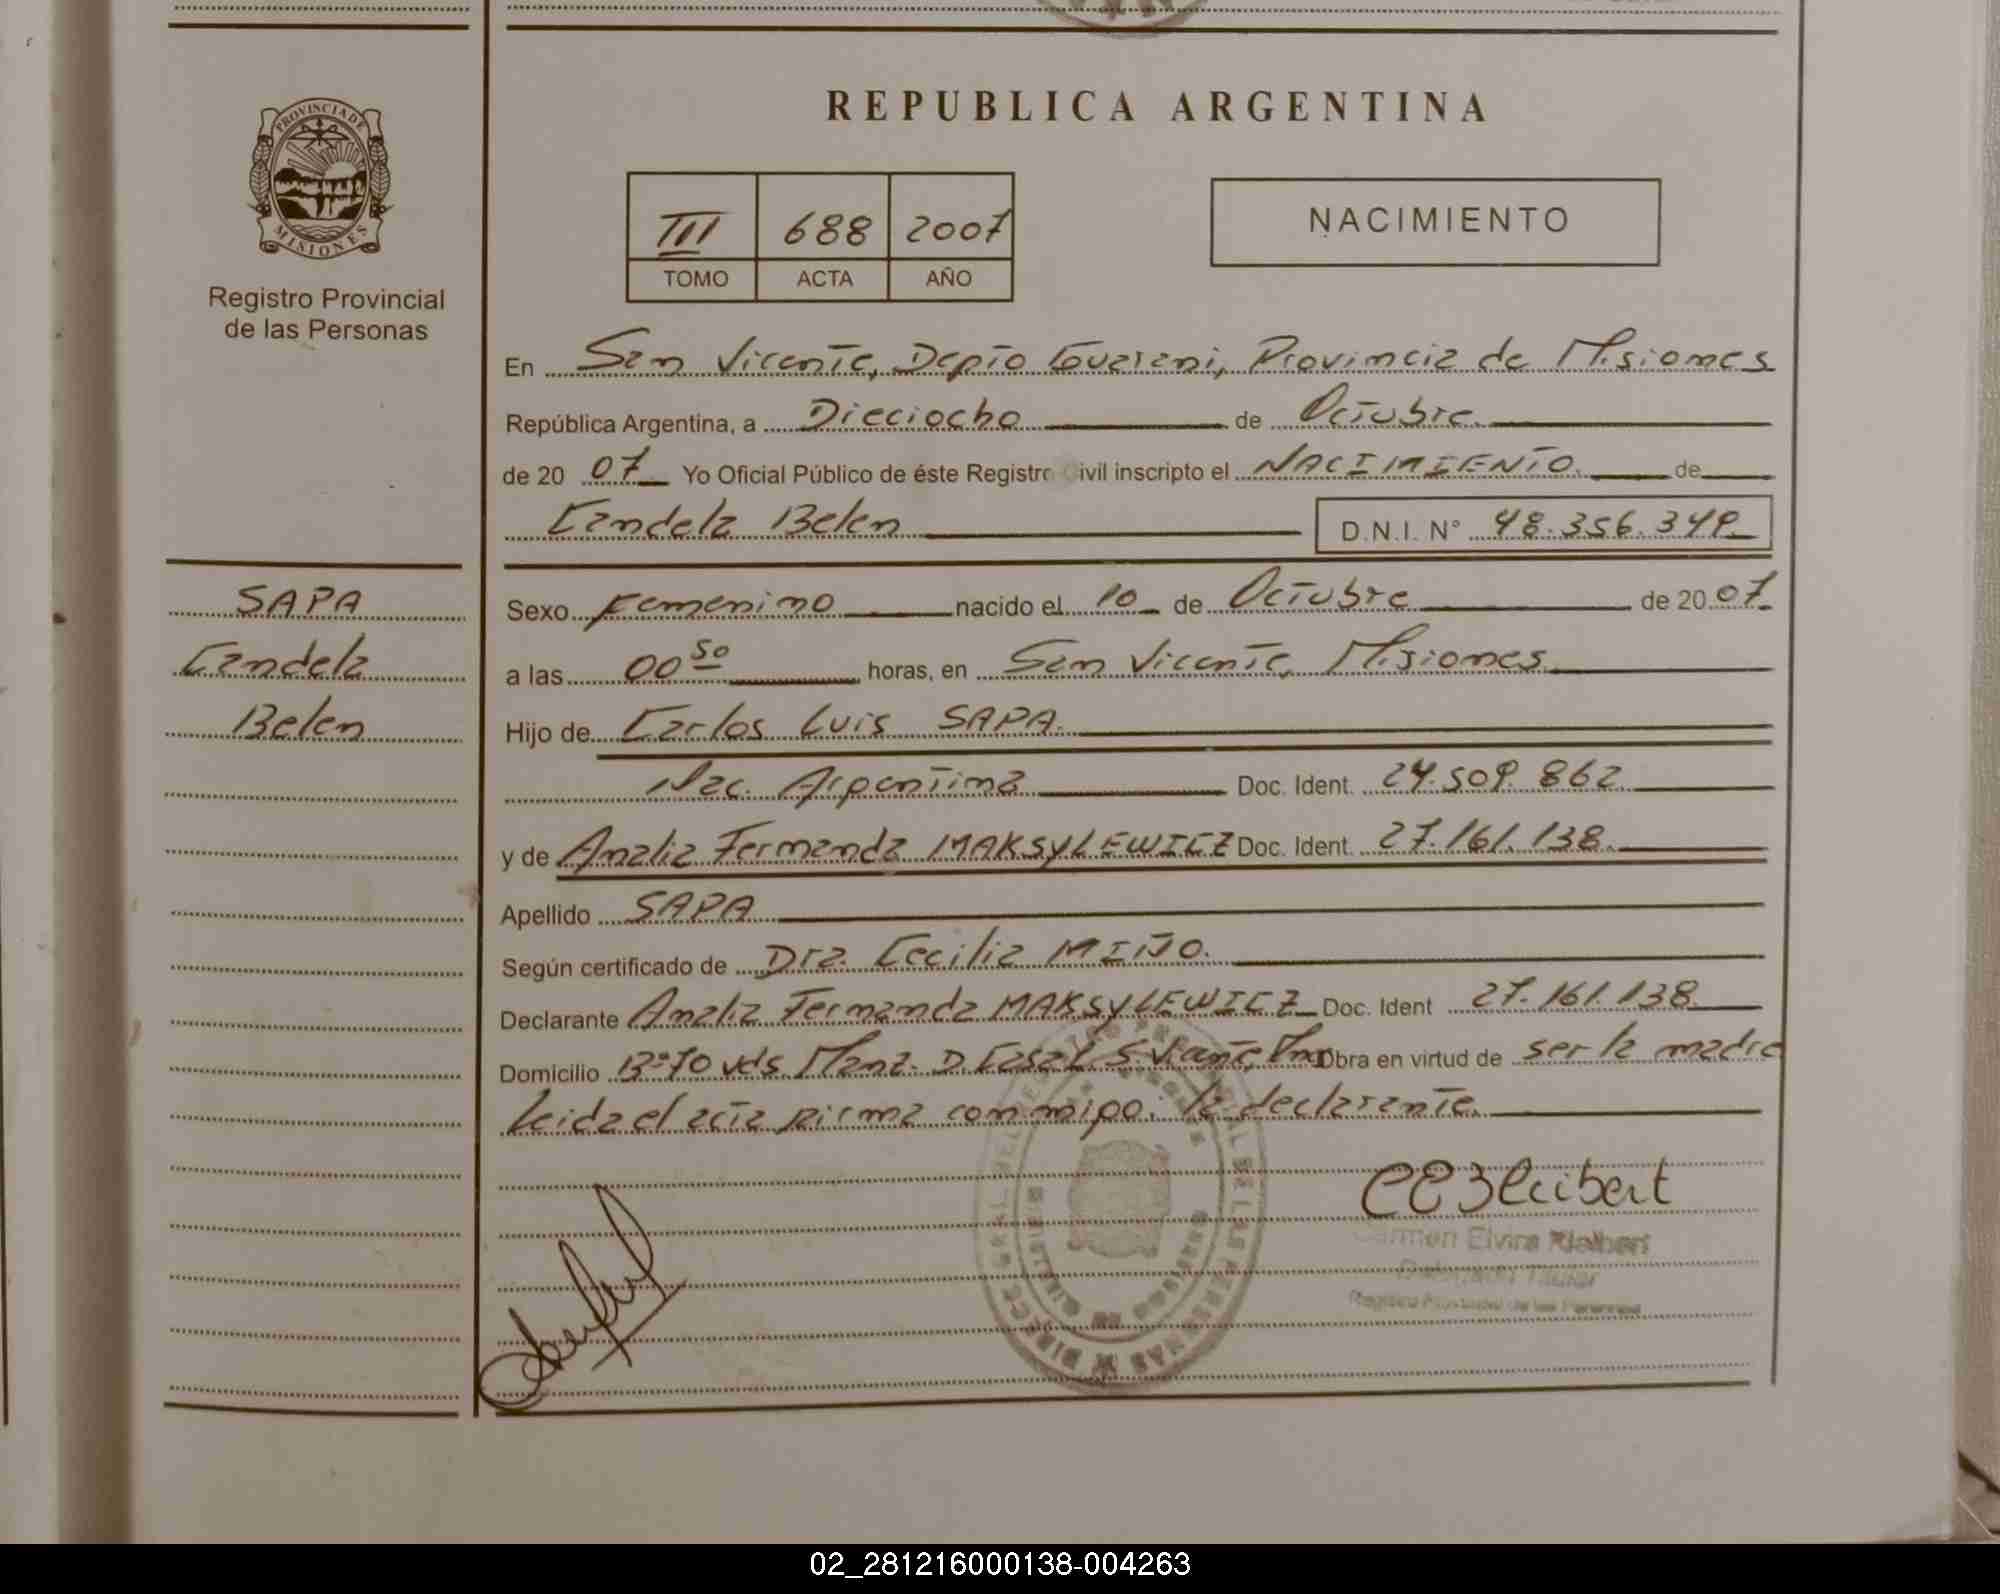 REPUBLICA ARGENTINA
PROVINCIA DE
MISIONES
Registro Provincial
de las Personas
III 688 2007
TOMO ACTA AÑO
NACIMIENTO
En San Vicente, Depto Guarani, Provincia de Misiones
República Argentina, a Dieciocho de Octubre.
de 20 07 Yo Oficial Público de éste Registro Civil inscripto el NACIMIENTO. de
Candela Belen D.N.I. N° 48.356.349.
SAPA
Candela
Belen
Sexo Femenino nacido el 10 de Octubre de 20 07
a las 00 50 horas, en San Vicente, Misiones
Hijo de Carlos Luis SAPA.
Nac. Argentina Doc. Ident. 24.509.862.
y de Analia Fernanda MAKSYLEWICZ Doc. Ident. 27.161.138.
Apellido SAPA
Según certificado de Dra. Cecilia MIÑO.
Declarante Analia Fernanda MAKSYLEWICZ Doc. Ident 27.161.138
Domicilio B° 70 vds. Manz. D. Casa 1. S. Vicente, Mnes Obra en virtud de ser la madre
Leida el acta firma conmigo: la declarante.
Carmen Elvira
Registro Provincial de las Personas
02_281216000138-004263